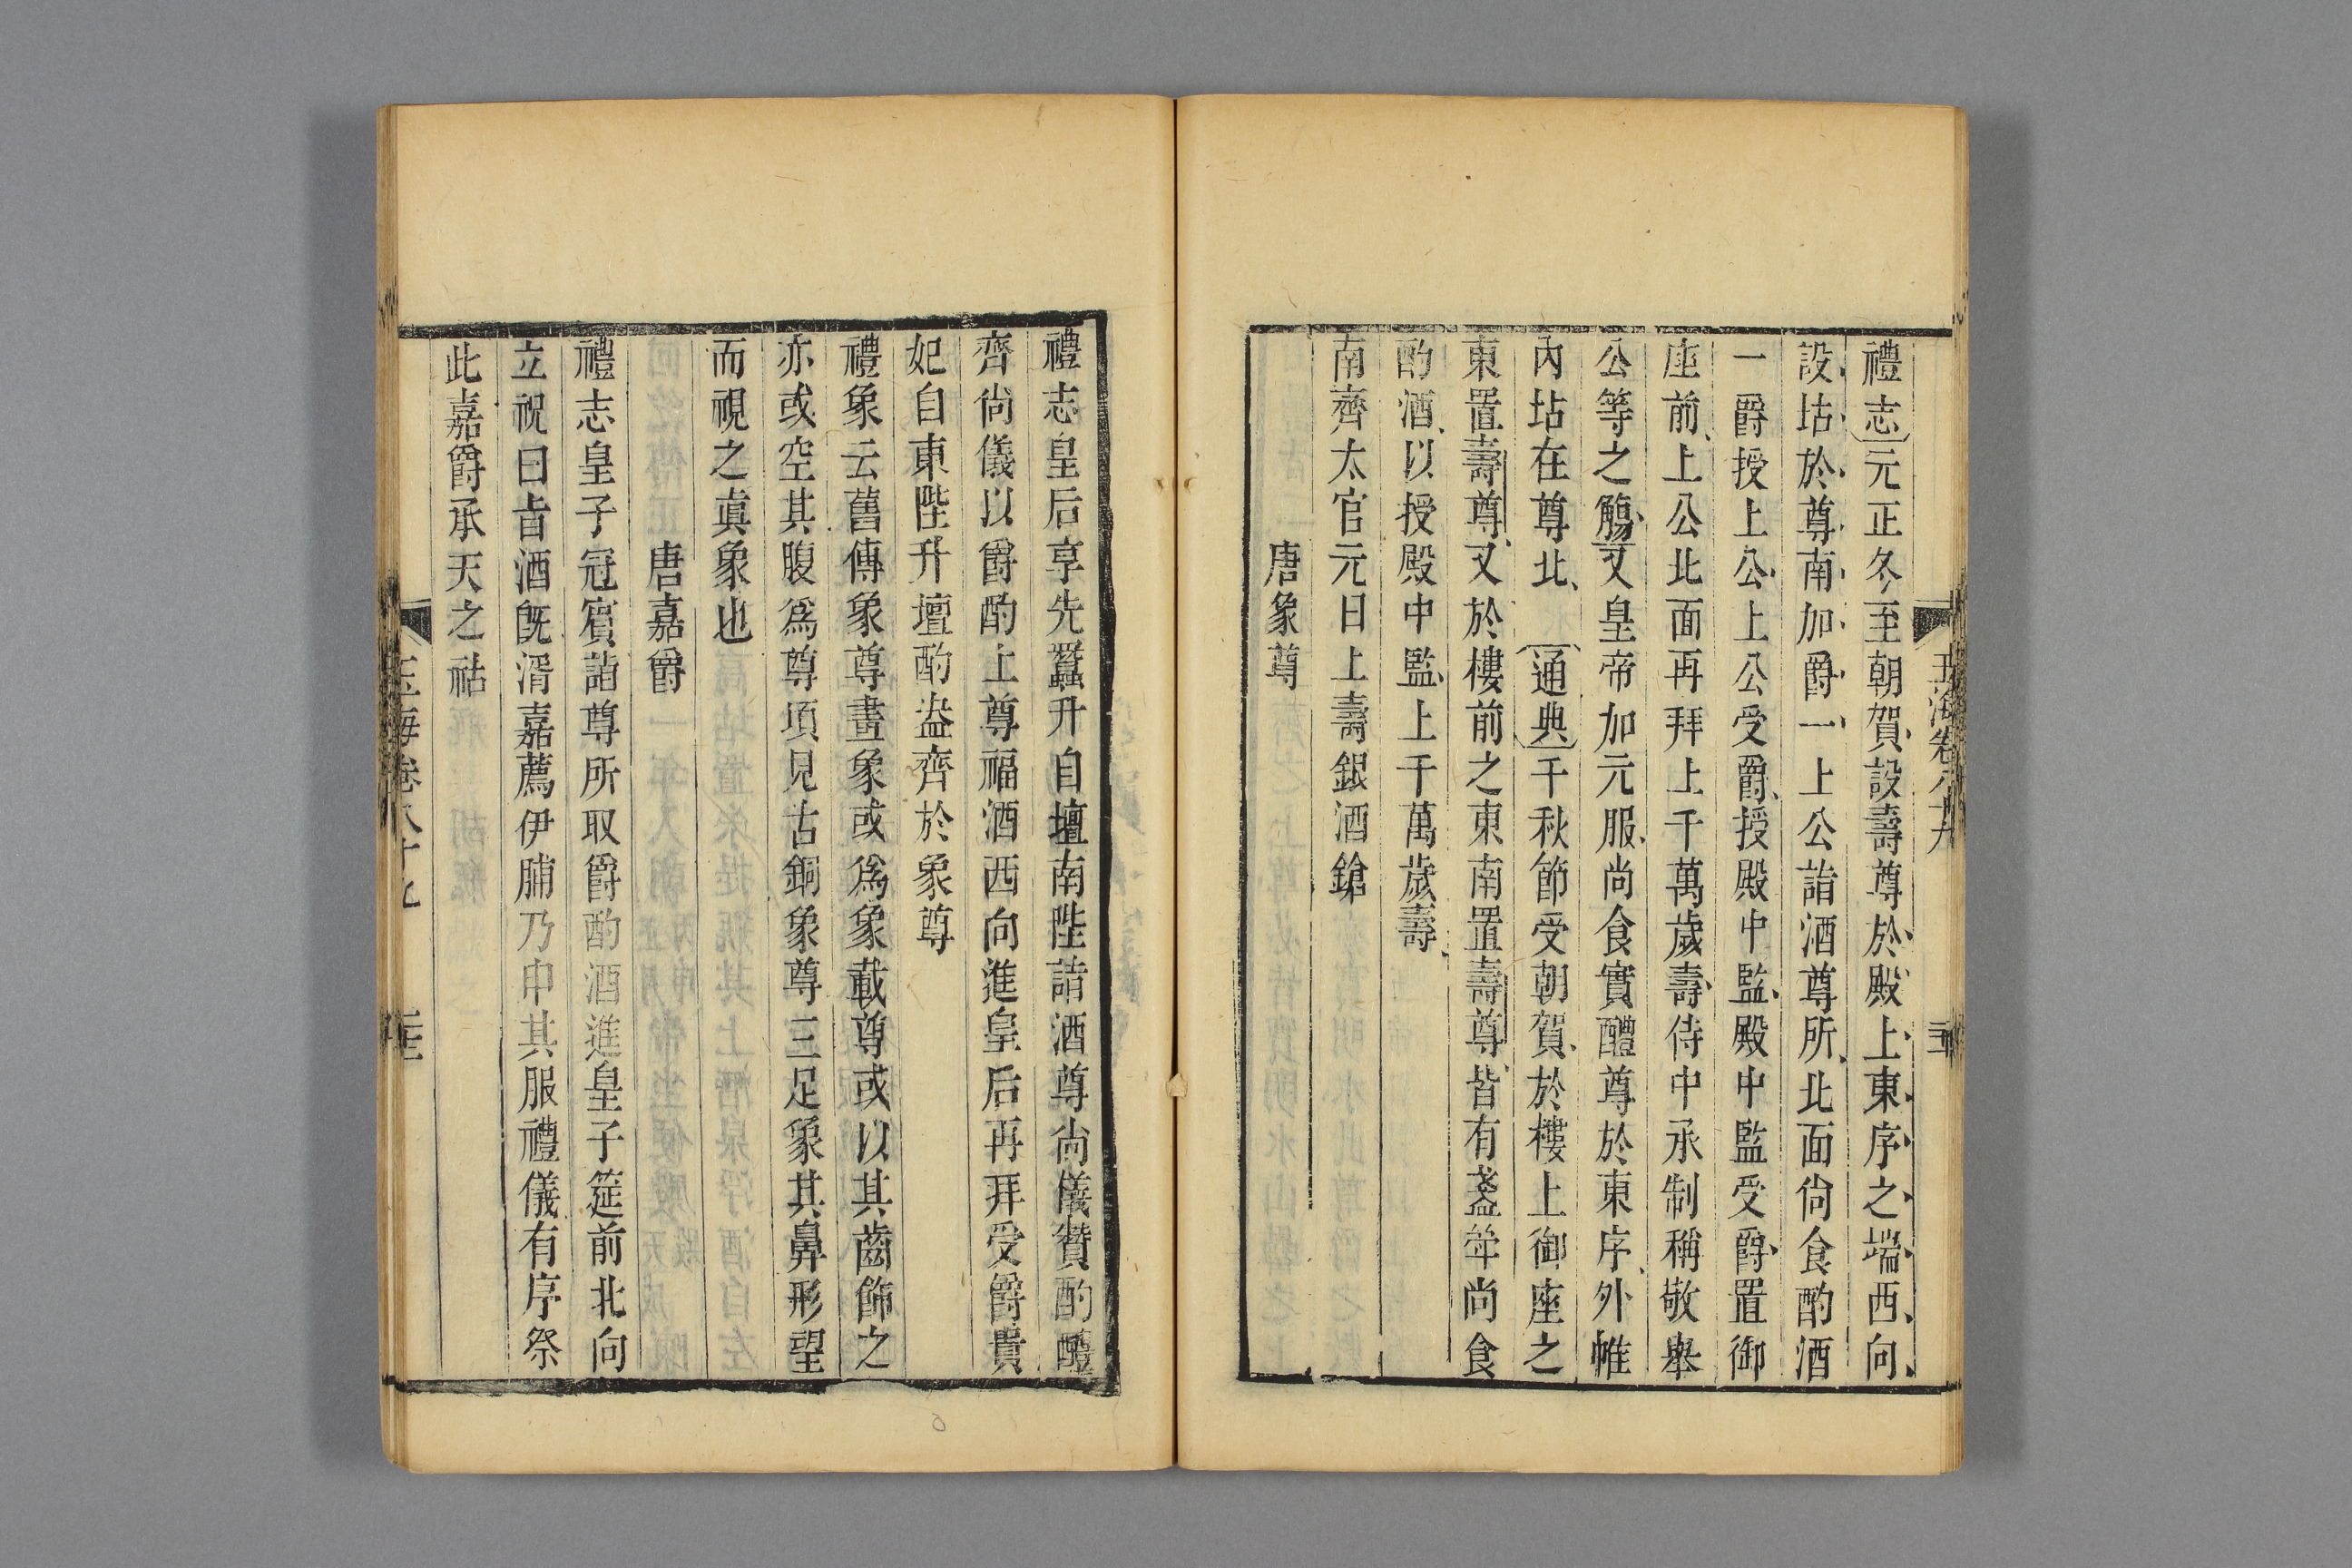 玉海卷八十九
禮志元正冬至朝賀設壽尊於殿上東序之端西向
設坫於尊南加爵一上公詣酒尊所北面尙食酌酒
一爵授上公上公受爵授殿中監殿中監受爵置御
座前上公北面再拜上千萬歲壽侍中承制稱敬舉
公等之觴又皇帝加元服尚食實醴尊於東序外帷
內坫在尊北 通典千秋節受朝賀於樓上御座之
東置壽尊又於樓前之東南置壽尊皆有盞牮尚食
酌酒以授殿中監上千萬歲壽
南齊太官元日上壽銀酒鎗
唐象尊
禮志皇后享先蠶升自壇南陛詣酒尊尚儀贊酌醴
齊尚儀以爵酌上尊福酒西向進皇后再拜受爵貴
妃自東陛升壇酌盎齊於象尊
禮象云舊傳象尊畫象或爲象載尊或以其齒飾之
亦或空其腹爲尊項見古銅象尊三足象其鼻形望
而視之眞象也
唐嘉爵
禮志皇子冠賓詣尊所取爵酌酒進皇子筵前北向
立祝曰旨酒旣湑嘉薦伊脯乃申其服禮儀有序祭
此嘉爵承天之祜
玉海卷八十九